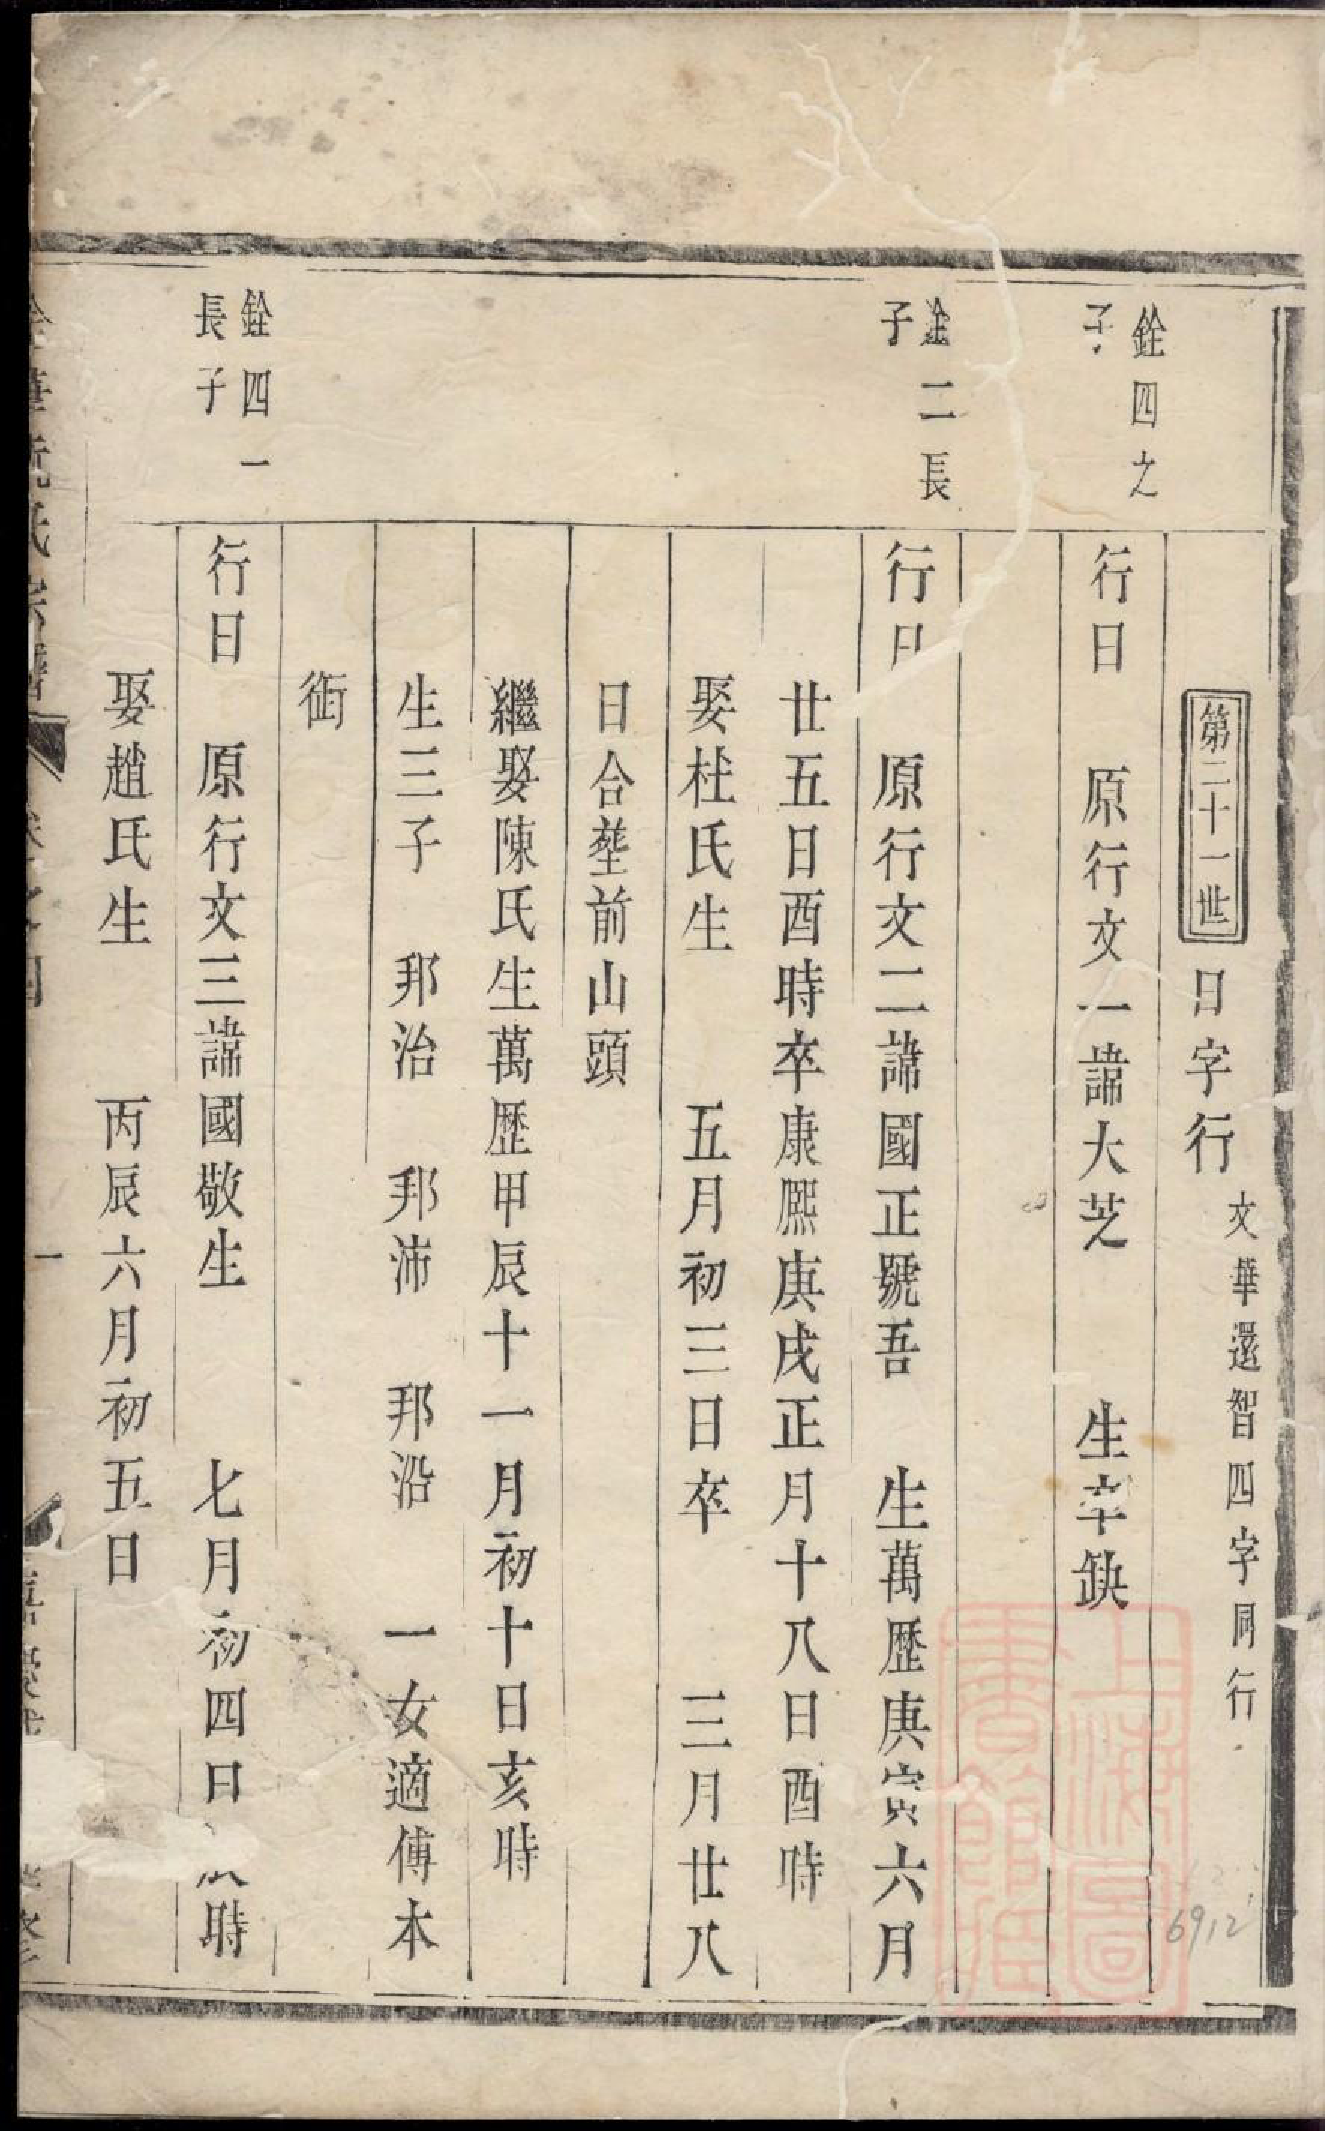 第二十一世
日字行
文華還智四字同行
銓四之
子
行日 原行文一諱大芝 生卒缺
銓二長
子
行日 原行文二諱國正號吾 生萬歷庚寅六月
廿五日酉時卒康熈庚戌正月十八日酉時
娶杜氏生 五月初三日卒 三月廿八
日合塟前山頭
繼娶陳氏生萬歷甲辰十一月初十日亥時
生三子 邦治 邦沛 邦沿 一女適傅本
衙
銓四一
長子
行日 原行文三諱國敬生 七月初四日 時
娶趙氏生 丙辰六月初五日
一
上海圖
書館藏
6912